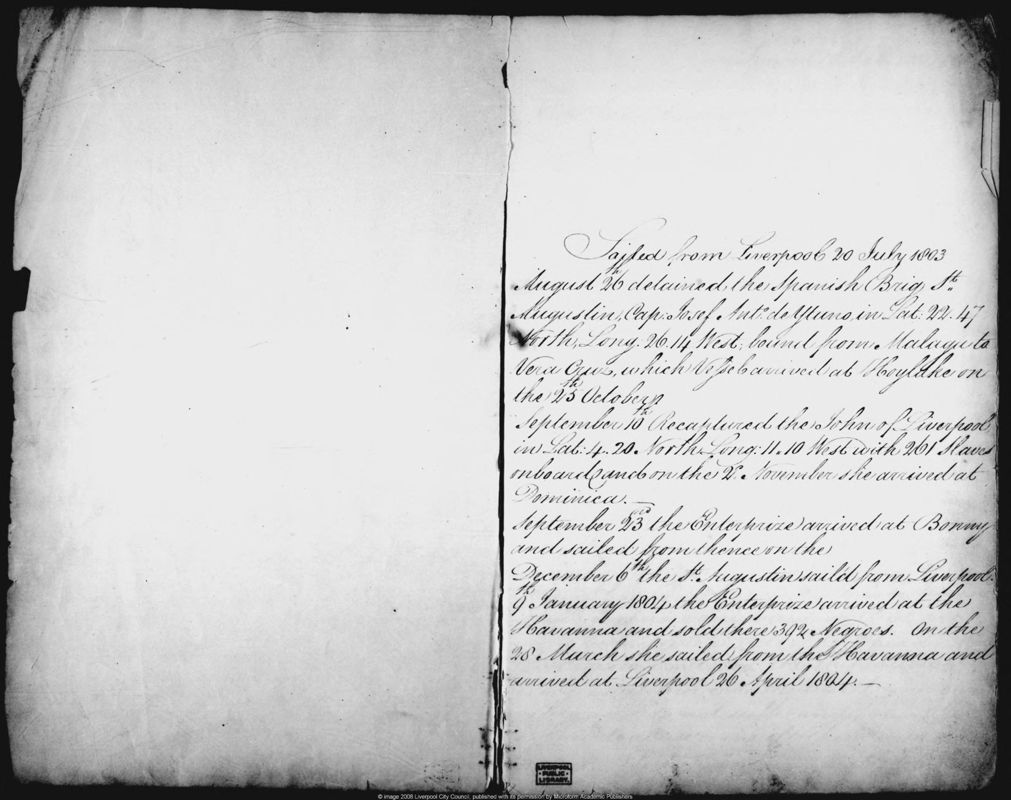 Sailed from Liverpool 20 July 1803
August 26th detained the Spanish Brig St.
Augustin, Cap. Josef Anto. de Ytuno, in Lat: 22.47
North, Long. 26.14 West, bound from Malaga to
Vera Cruz, which Vessel arrived at Hoylake on
the 25th October
September 10th Recaptured the John of Liverpool
in Lat: 4.20 North, Long: 11.10 West with 261 Slaves
onboard, and on the 2d. November she arrived at
Dominica. —
September 23rd the Enterprize arrived at Bonny
and sailed from thence on the
December 6th the St. Augustin saild from Liverpool.
9th January 1804 the Enterprize arrived at the
Havanna and sold there 392 Negroes. On the
28 March she sailed from the Havanna and
arrived at Liverpool 26 April 1804. —
LIVERPOOL
PUBLIC
LIBRARY.
© image 2008 Liverpool City Council, published with its permission by Microform Academic Publishers